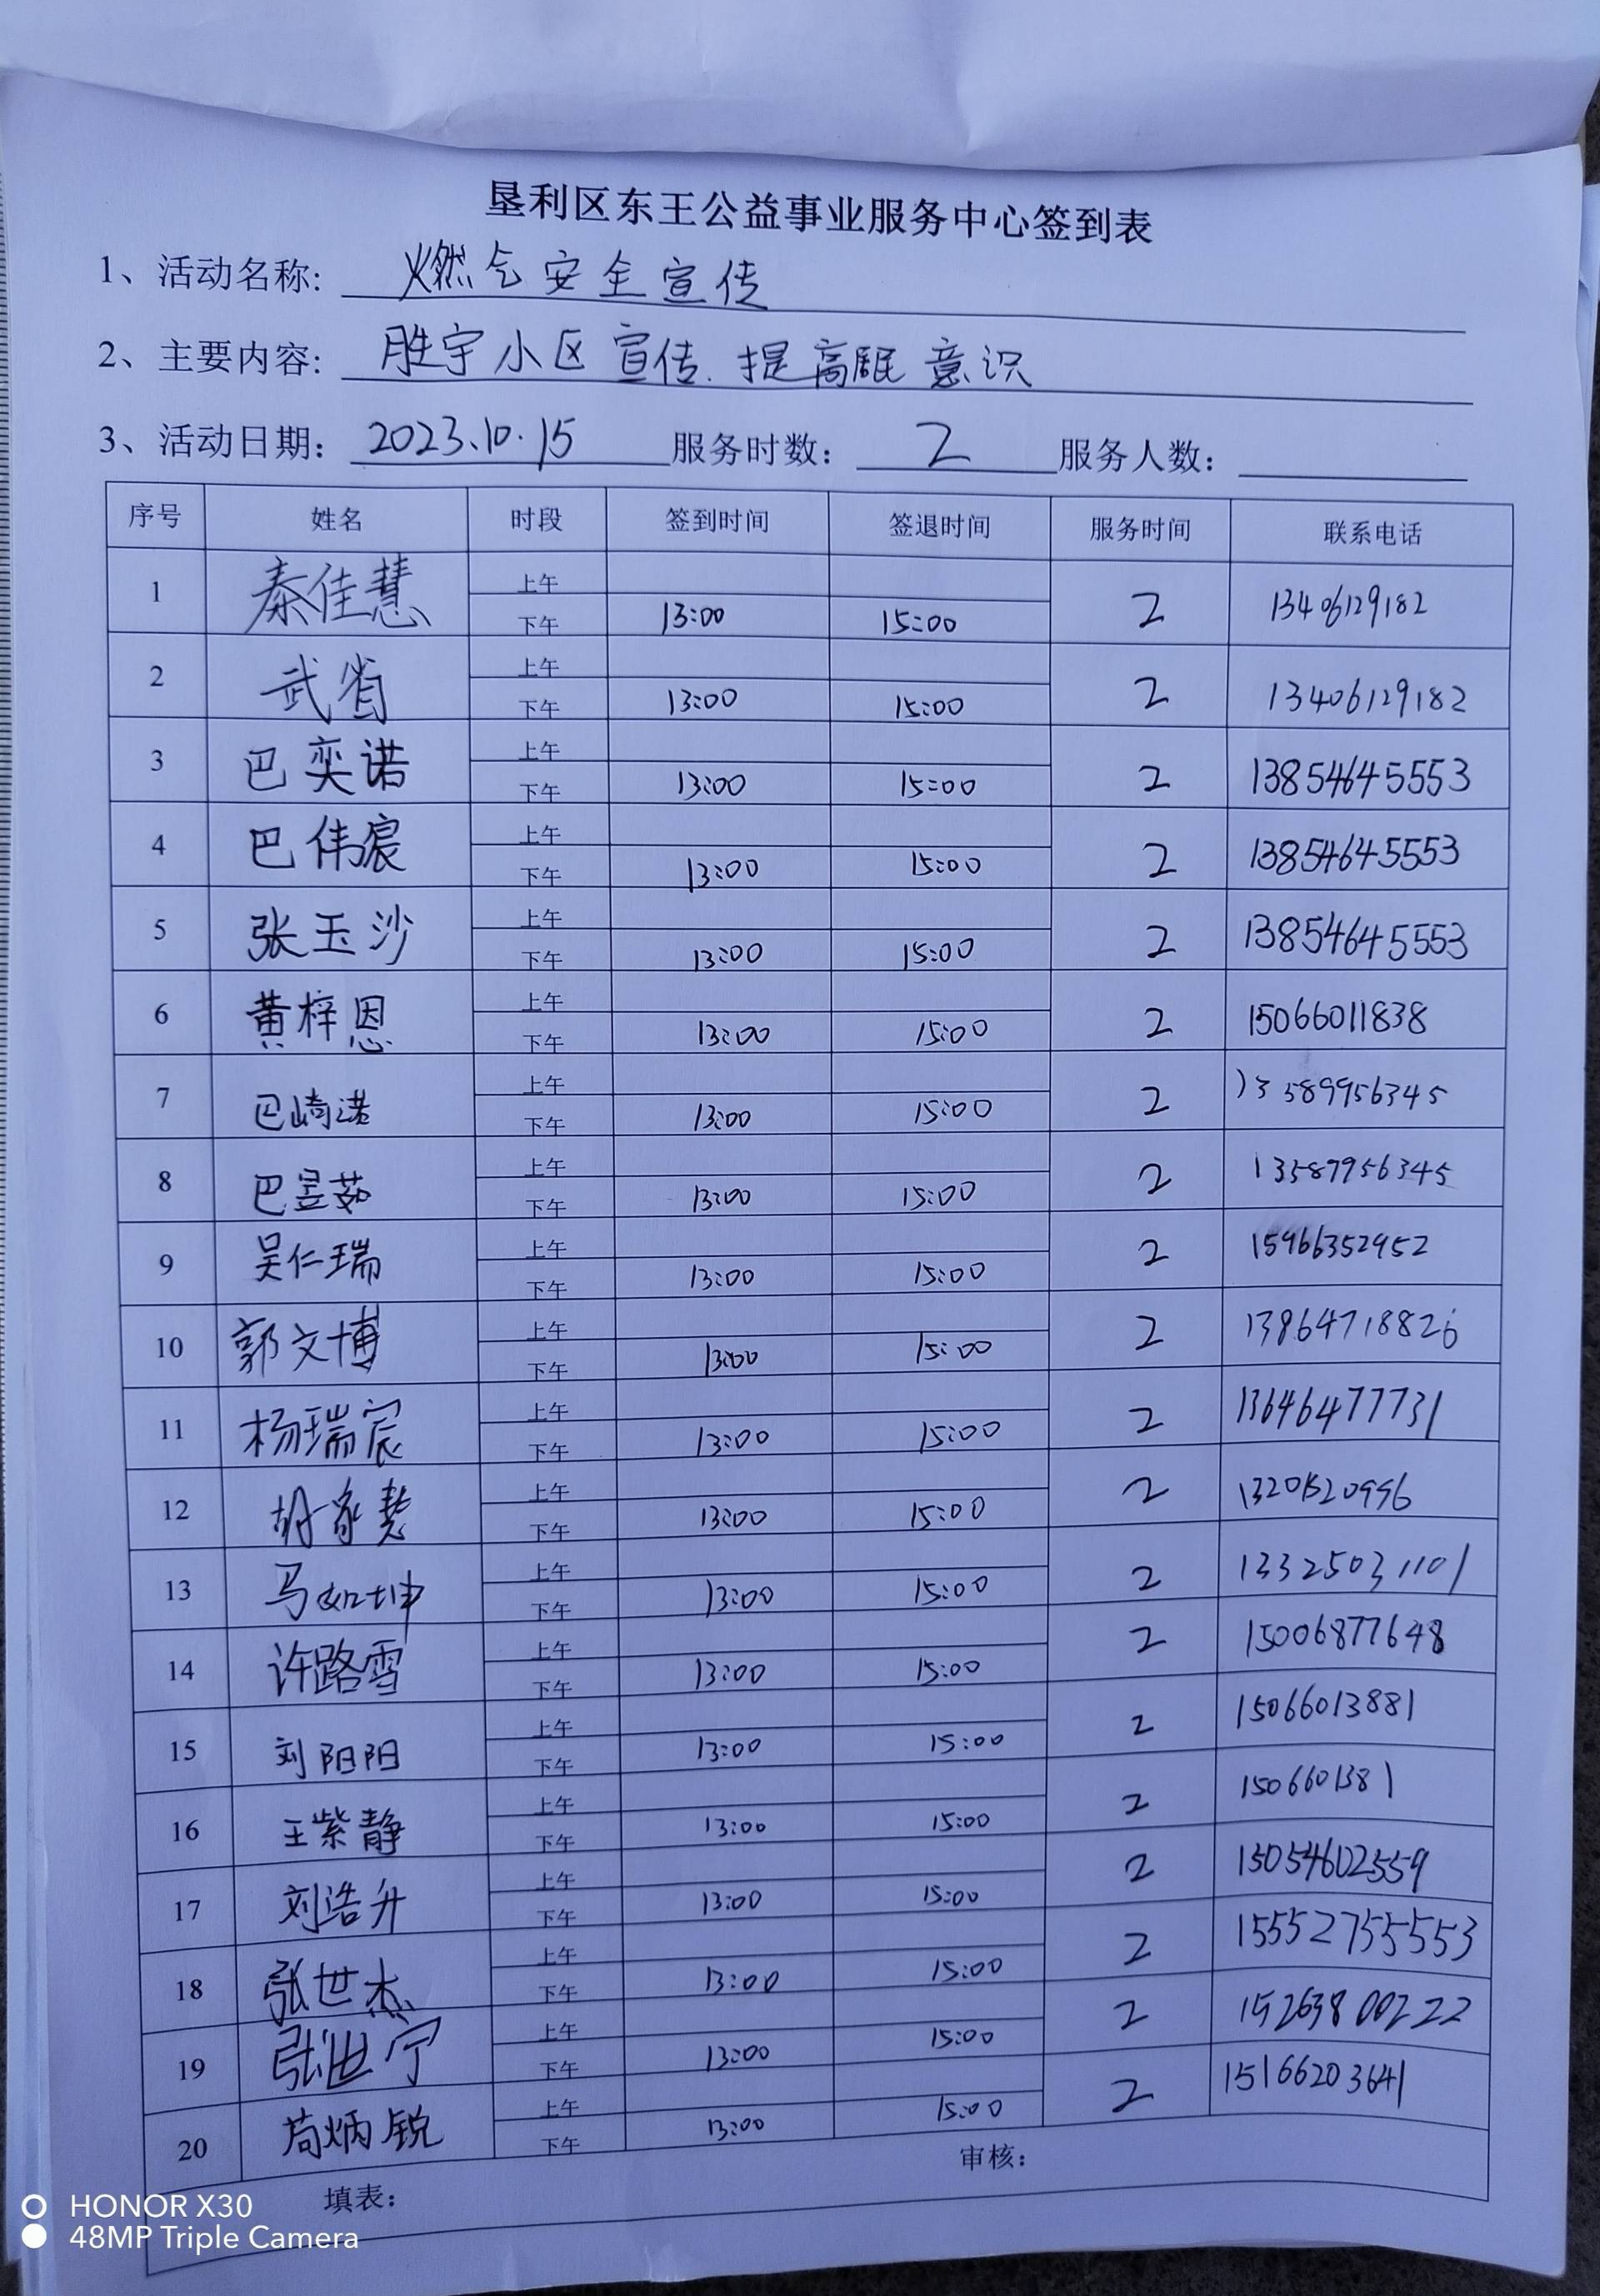 垦利区东王公益事业服务中心签到表
1、活动名称: 燃气安全宣传
2、主要内容: 胜宇小区宣传.提高居民意识
3、活动日期: 2023.10.15 服务时数: 2 服务人数:
序号 姓名 时段 签到时间 签退时间 服务时间 联系电话
1 秦佳慧 上午 2 13406129182
下午 13:00 15:00
2 武省 上午 2 13406129182
下午 13:00 15:00
3 巴奕诺 上午 2 13854645553
下午 13:00 15:00
4 巴伟宸 上午 2 13854645553
下午 13:00 15:00
5 张玉沙 上午 2 13854645553
下午 13:00 15:00
6 黄梓恩 上午 2 15066011838
下午 13:00 15:00
7 巴崎诺 上午 2 13589956345
下午 13:00 15:00
8 巴昱茹 上午 2 13589956345
下午 13:00 15:00
9 吴仁瑞 上午 2 15966352952
下午 13:00 15:00
10 郭文博 上午 2 13864718826
下午 13:00 15:00
11 杨瑞宸 上午 2 13646477731
下午 13:00 15:00
12 胡家慧 上午 2 13201520996
下午 13:00 15:00
13 马如坤 上午 2 13325031101
下午 13:00 15:00
14 许路雪 上午 2 15006877648
下午 13:00 15:00
15 刘阳阳 上午 2 15066013881
下午 13:00 15:00
16 王紫静 上午 2 1506601381
下午 13:00 15:00
17 刘浩升 上午 2 15054602559
下午 13:00 15:00
18 张世杰 上午 2 15552755553
下午 13:00 15:00
19 张世宁 上午 2 15263800222
下午 13:00 15:00
20 苟炳锐 上午 2 15166203641
下午 13:00 15:00
填表: 审核:
HONOR X30
48MP Triple Camera